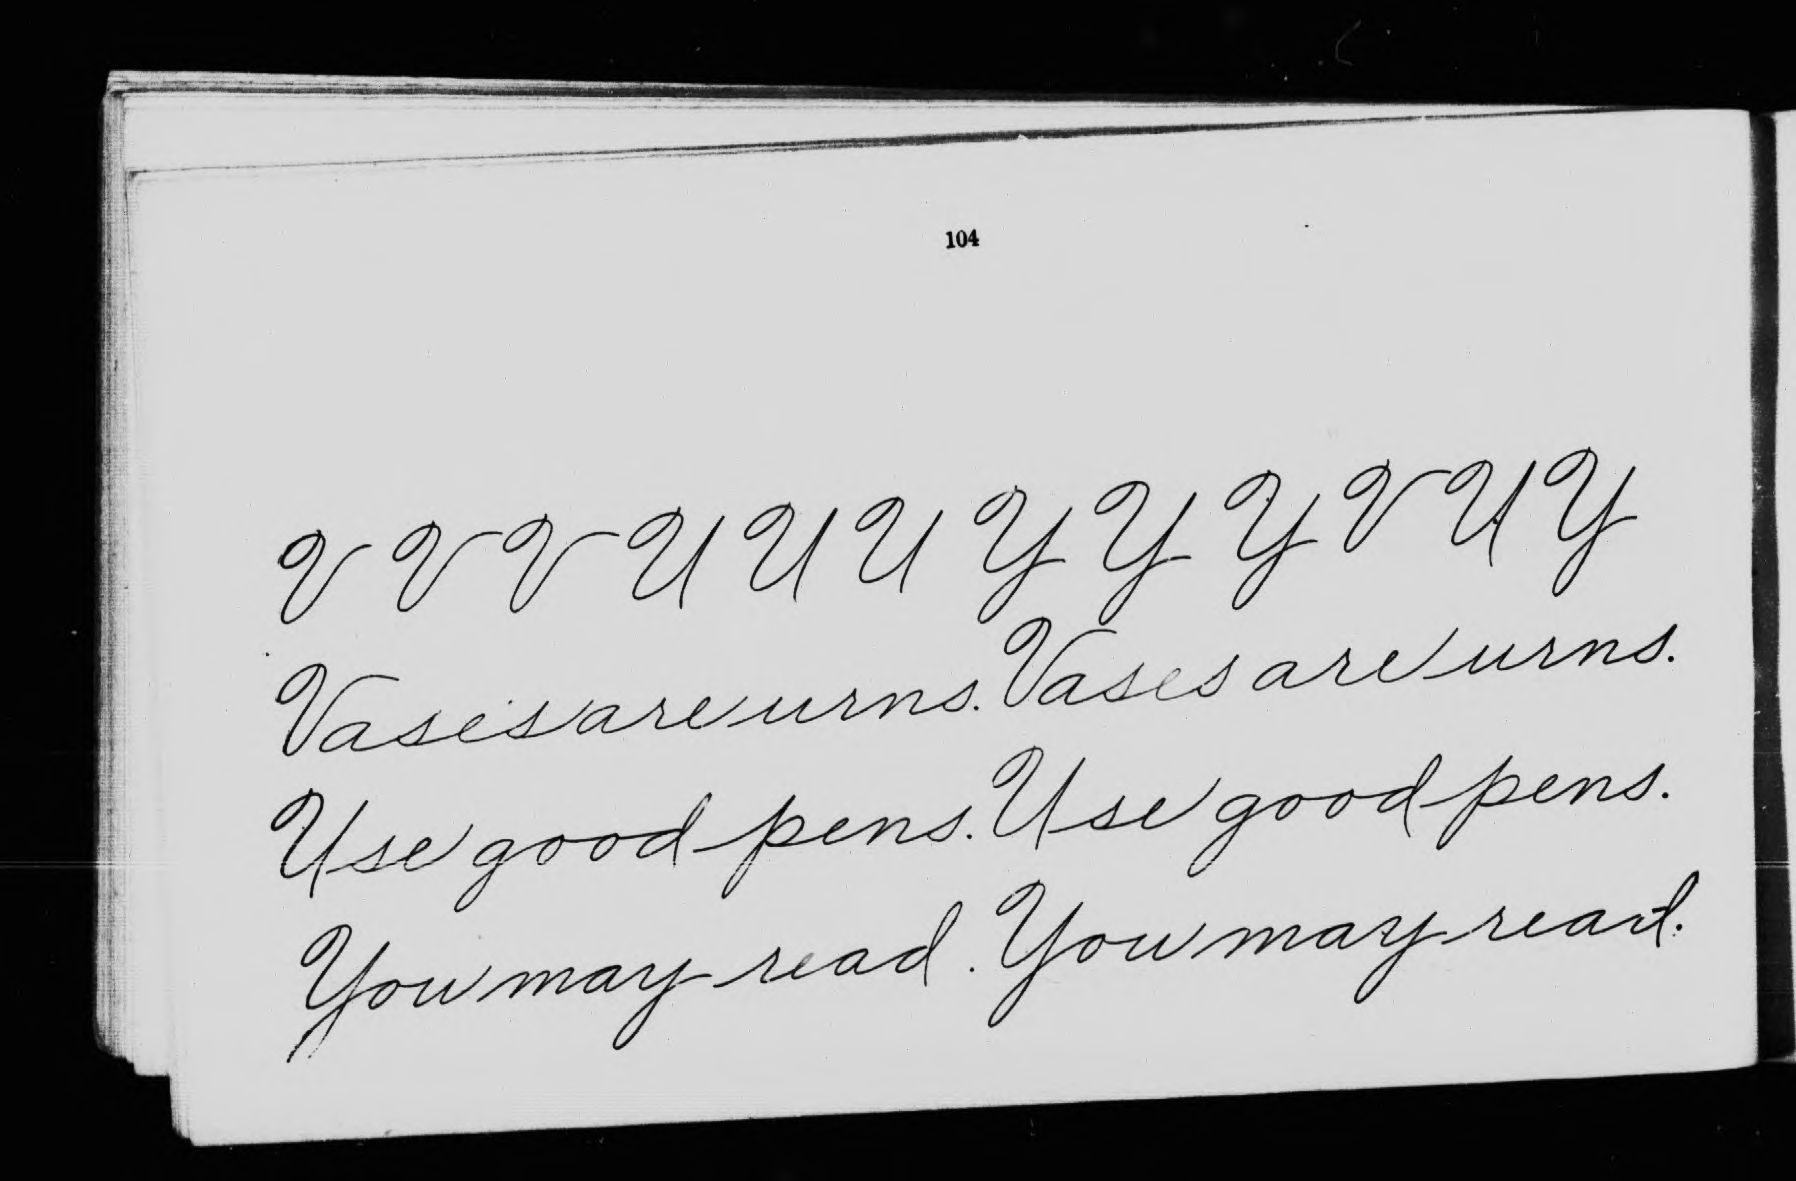 104
V V V U U U Y Y Y V U Y
Vases are urns. Vases are urns.
Use good pens. Use good pens.
You may read. You may read.